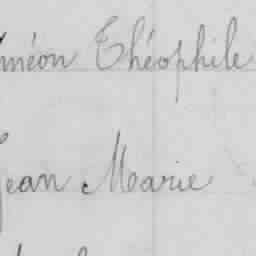 Siméon Théophile
Jean Marie